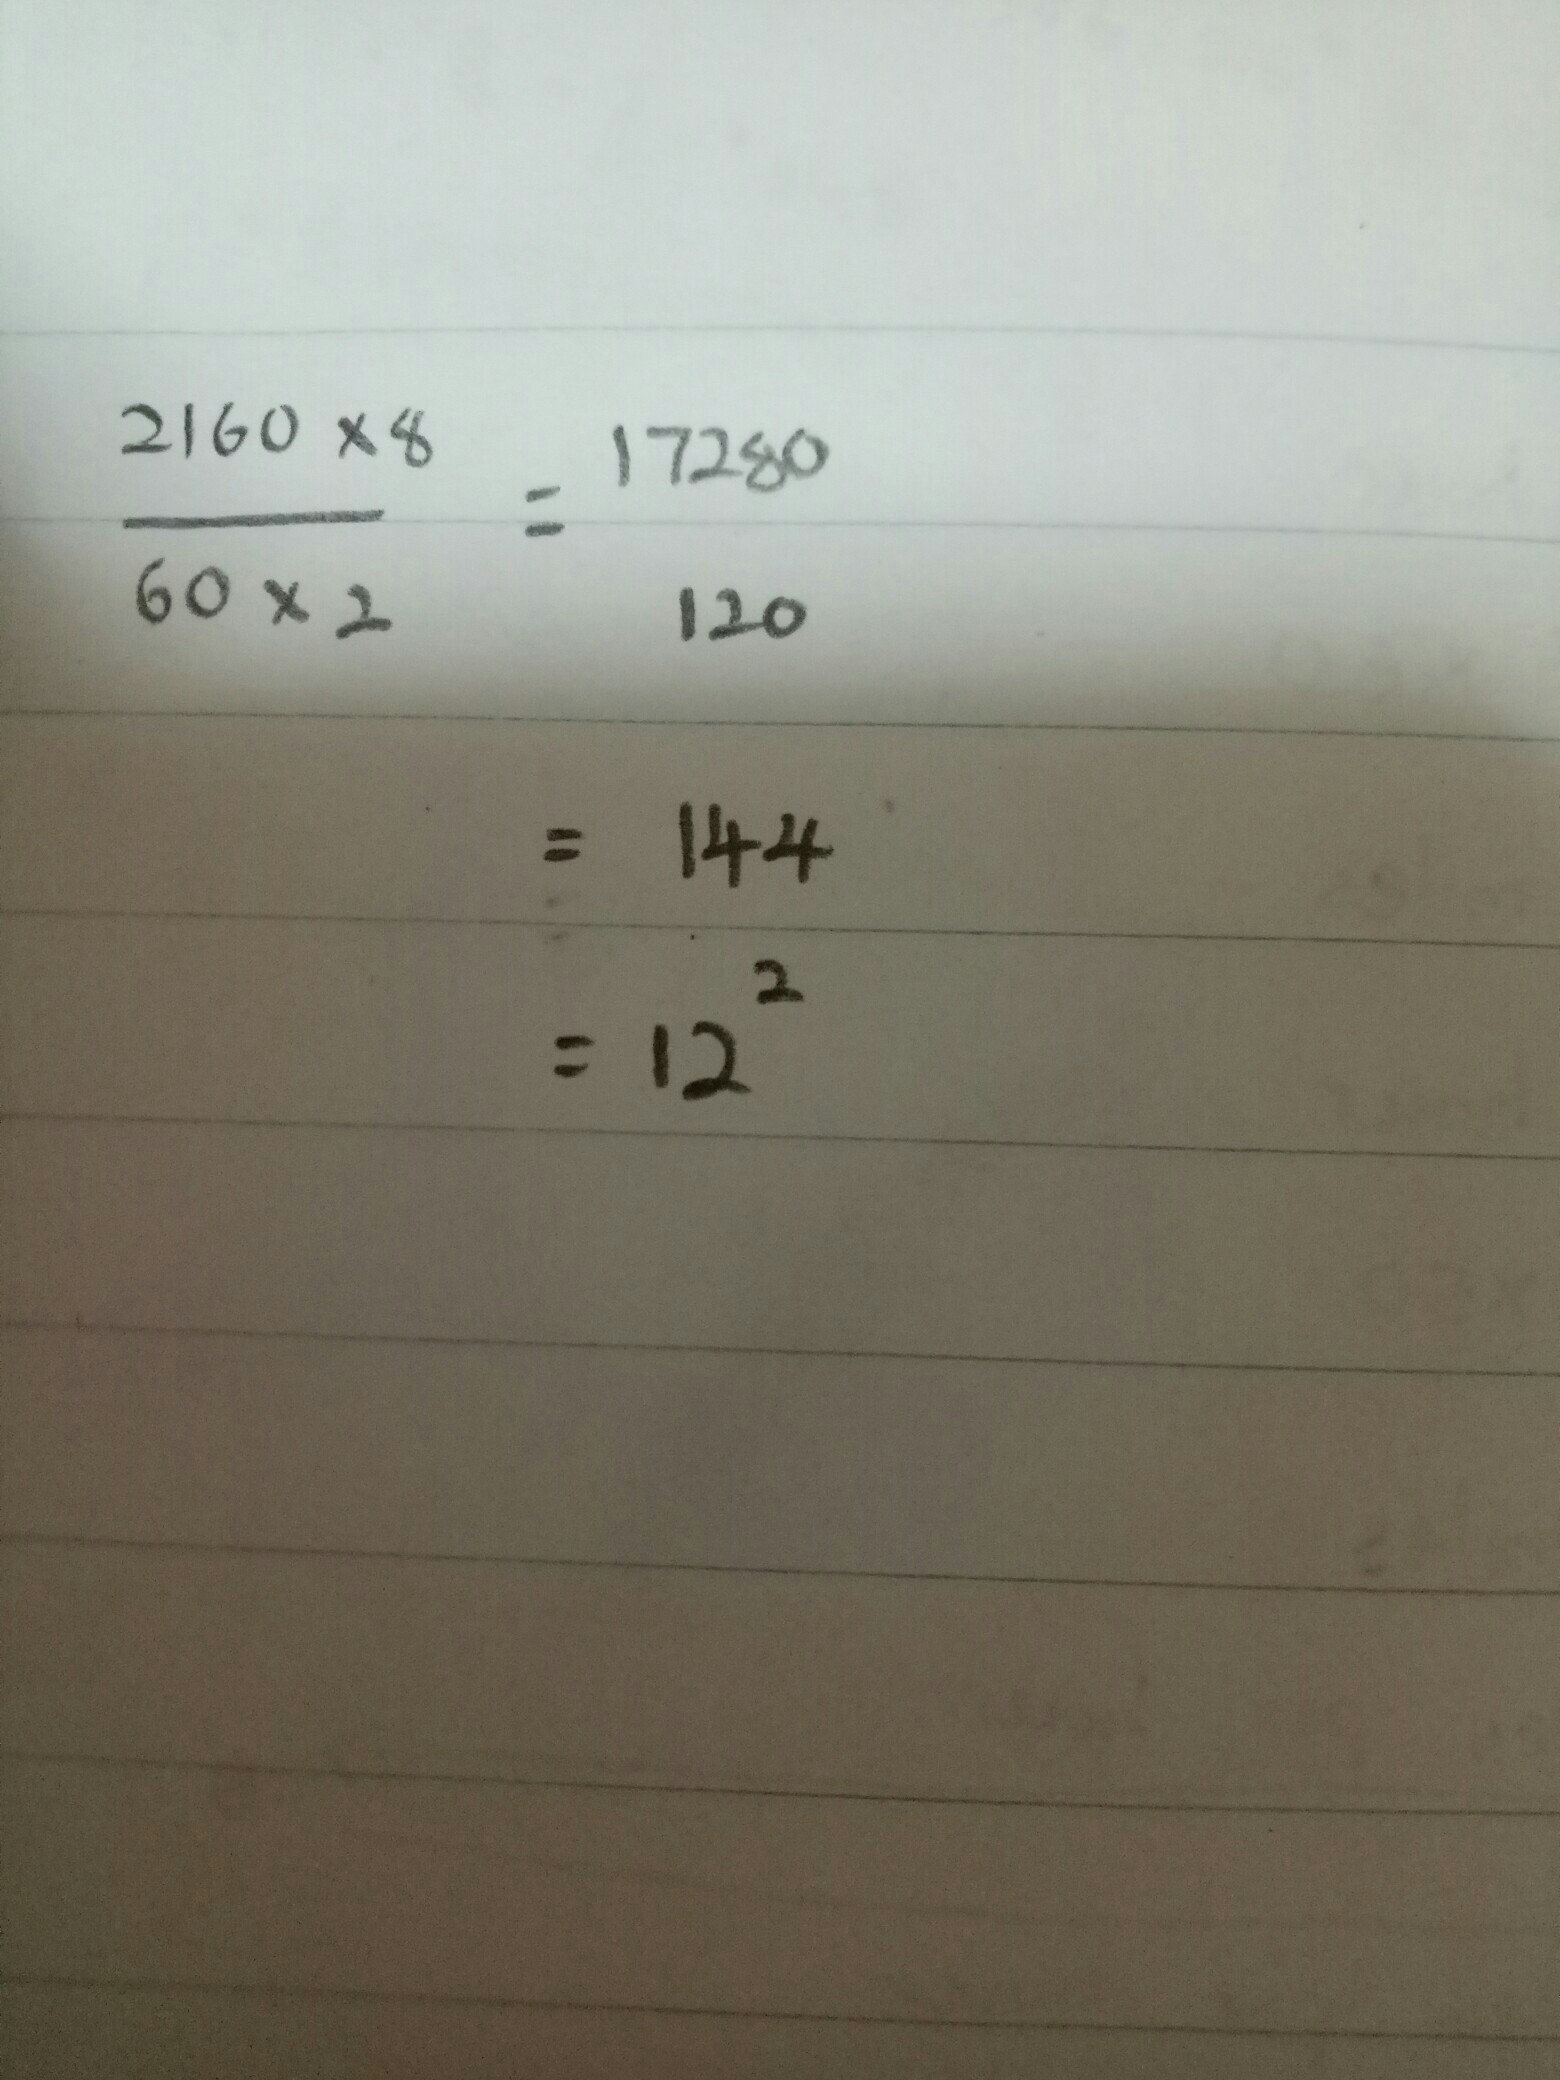 2160 × 8
60 × 2
= 17280
120
= 144
= 12²